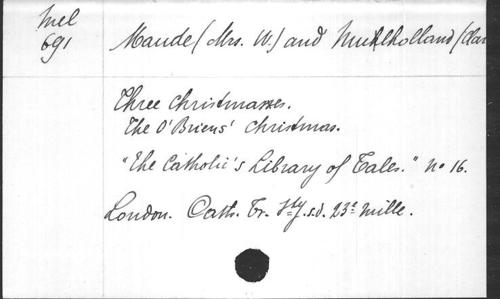 Mel
691
Maude (Mrs. W.) and Muhlholland (Clar
Three Christmasses.
The O'Briens' Christmas.
"The Catholic's Library of Tales." No 16.
London. Cath. Tr. Sty. s.d. 23e mille.